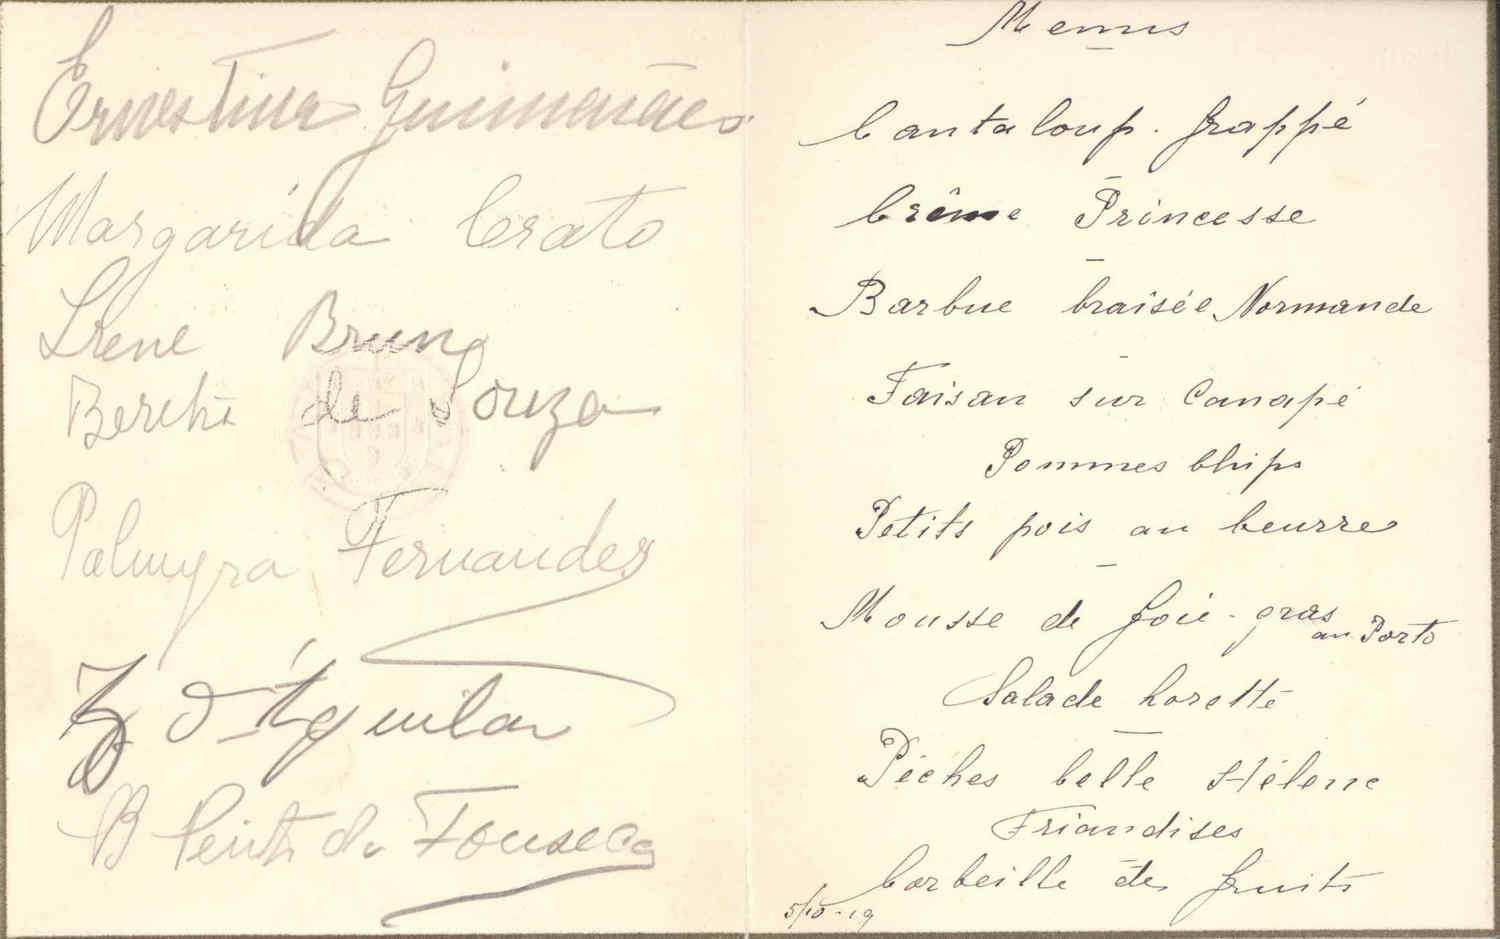 Ernestina Guimarães
Margarida Crato
Irene Bruno
Bertha de Souza
Palmyra Fernandes
d'Aguilar
B de Fonseca
Menus
Cantaloup. frappé
Crême Princesse
Barbue braisée Normande
Faisan sur Canapé
Pommes Chips
Petits pois au beurre
Mousse de foie-gras
au Porto
Salade Lorette
Pêches belle Hélène
Friandises
Corbeille de fruits
5/10-19